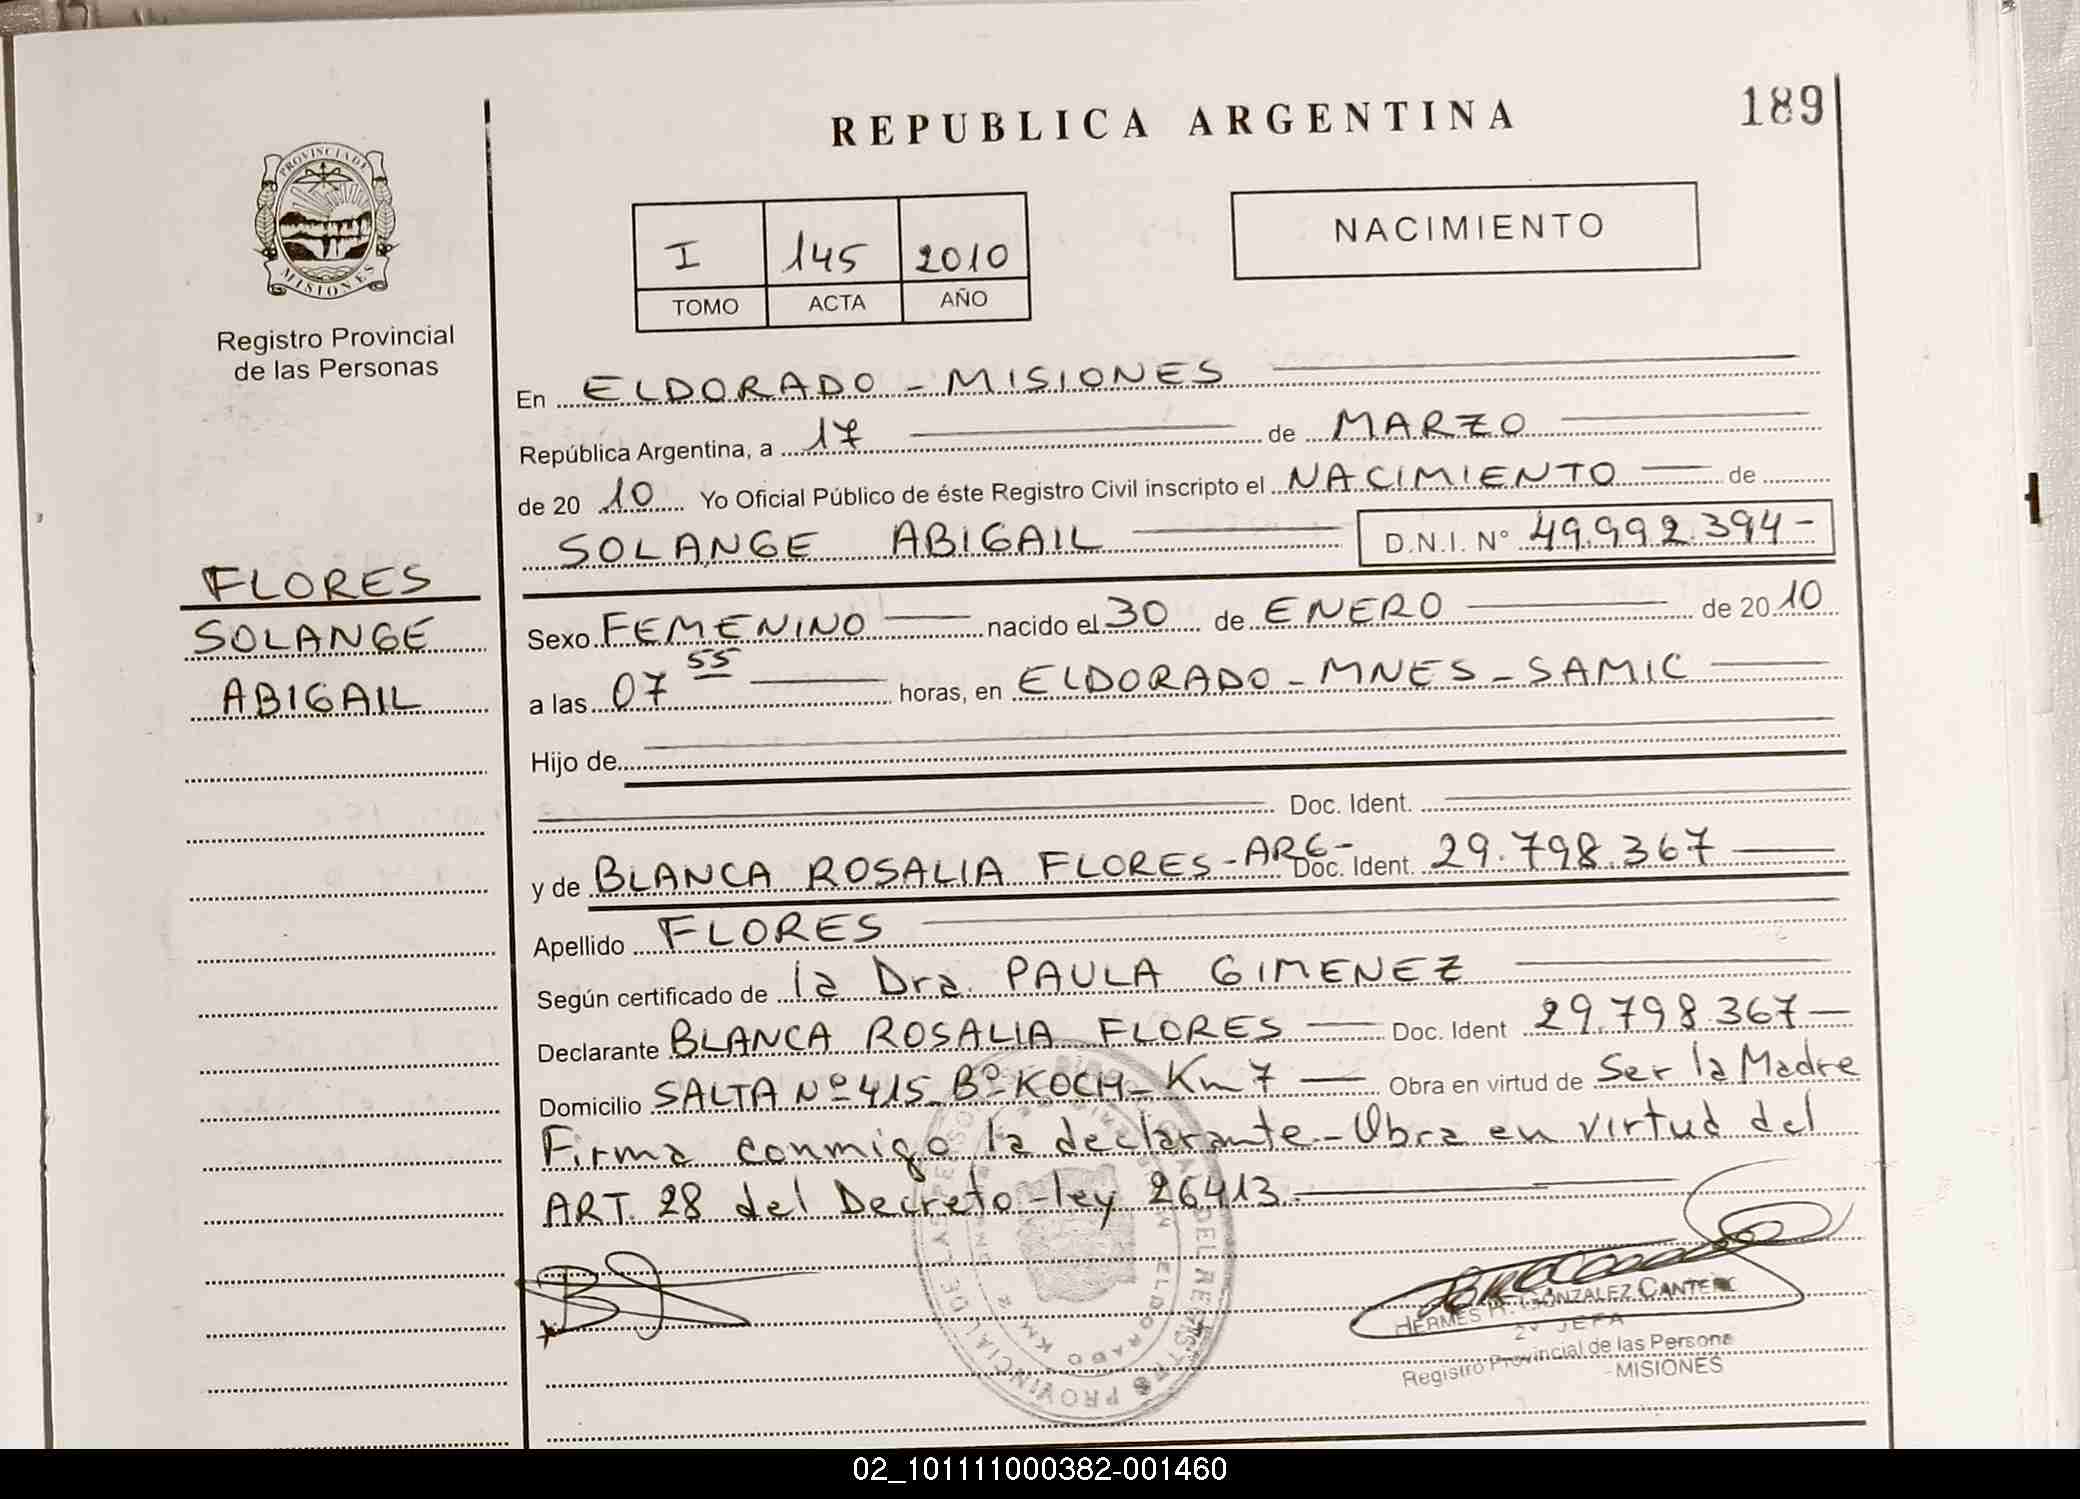 REPUBLICA ARGENTINA
189
PROVINCIA DE
MISIONES
Registro Provincial
de las Personas
I 145 2010
TOMO ACTA AÑO
NACIMIENTO
En ELDORADO - MISIONES
República Argentina, a 17 de MARZO
de 20 10 Yo Oficial Público de éste Registro Civil inscripto el NACIMIENTO de
SOLANGE ABIGAIL D.N.I. N° 49.992.394-
FLORES
SOLANGE
ABIGAIL
Sexo FEMENINO nacido el 30 de ENERO de 20 10
a las 07 55 horas, en ELDORADO - MNES - SAMIC
Hijo de
Doc. Ident.
y de BLANCA ROSALIA FLORES - ARG - Doc. Ident. 29.798.367
Apellido FLORES
Según certificado de la Dra. PAULA GIMENEZ
Declarante BLANCA ROSALIA FLORES Doc. Ident 29.798.367
Domicilio SALTA Nº 415 Bº KOCH - Km 7 Obra en virtud de Ser la Madre
Firma conmigo la declarante - Obra en virtud del
ART. 28 del Decreto - ley 26413.
HERMES R. GONZALEZ CANTERO
JEFA
Registro Provincial de las Persona
MISIONES
ELDORADO KM
02_101111000382-001460